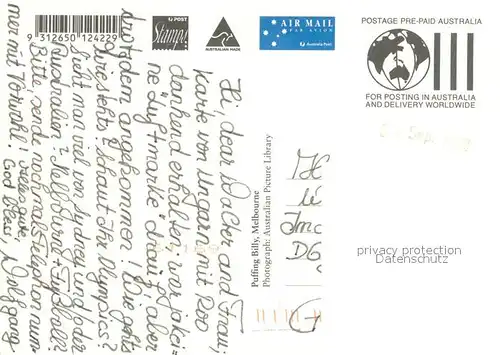 9 312650 124229
POST
Stamp!
AUSTRALIAN MADE
AIR MAIL
PAR AVION
Australia Post
POSTAGE PRE-PAID AUSTRALIA
FOR POSTING IN AUSTRALIA
AND DELIVERY WORLDWIDE
Hi, dear Walter and Frau,
Karte von Ungarn mit Roo
dankend erhalten, war ja kei-
ne "Luftmarke" drauf, aber
trotzdem angekommen! Wie geht's
wie steht's? Schaut Ihr Olympics?
Sieht man viel von Sydney und/oder
Australien? Melbourne, Fußball?
Bitte, sende nochmals Telephon num-
mer mit Vorwahl. Alles gute,
God bless, Wolfgang.
Puffing Billy, Melbourne
Photograph: Australian Picture Library
D6
privacy protection
Datenschutz